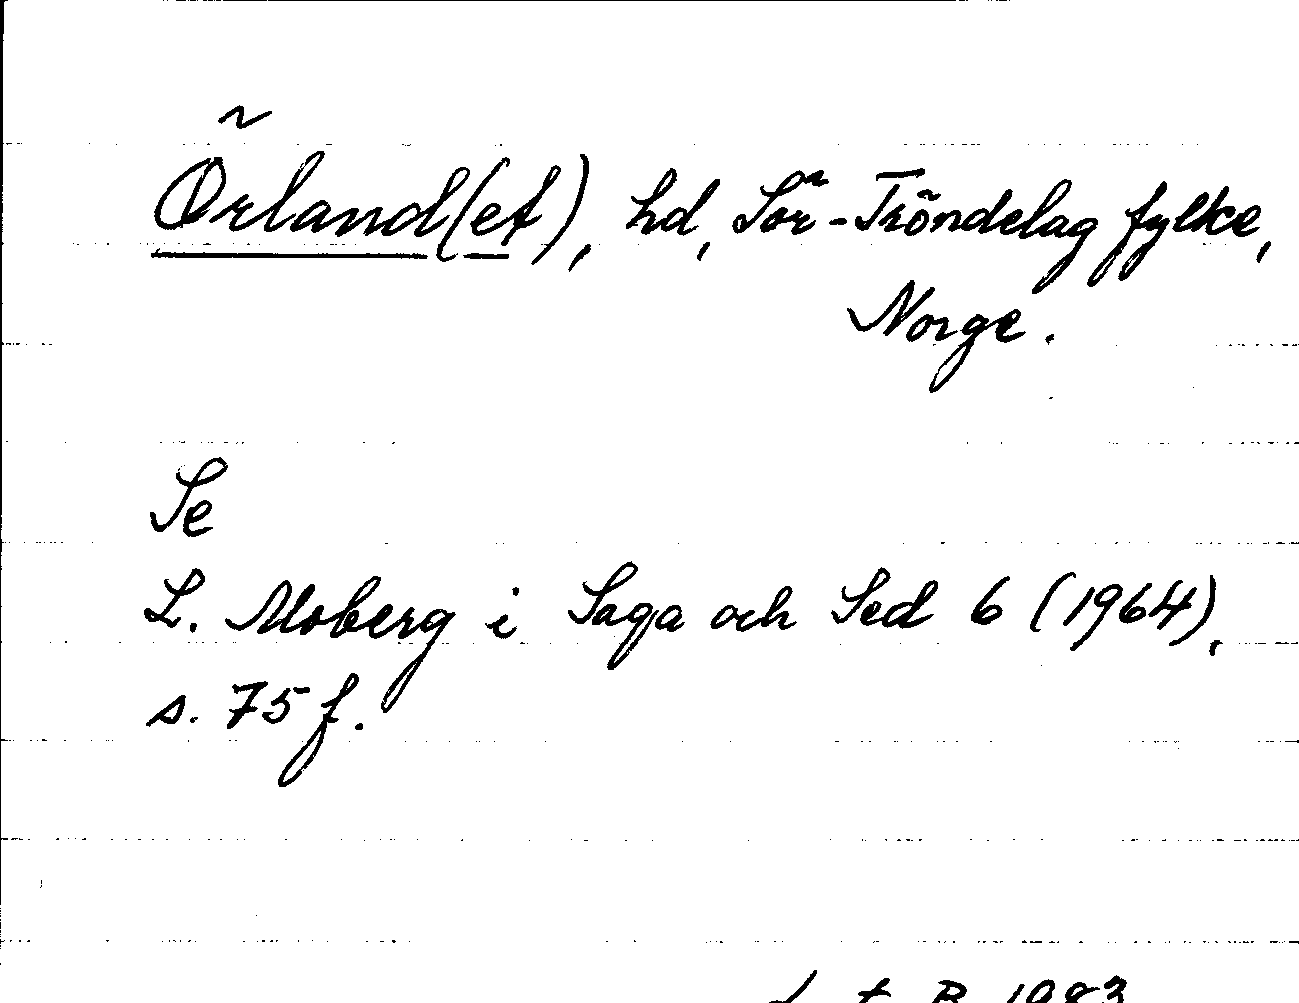 Örland(et), hd, Sör-Tröndelag fylke,
Norge.
Se
L. Moberg i Saga och Sed 6 (1964),
s. 75 f.
B 1983